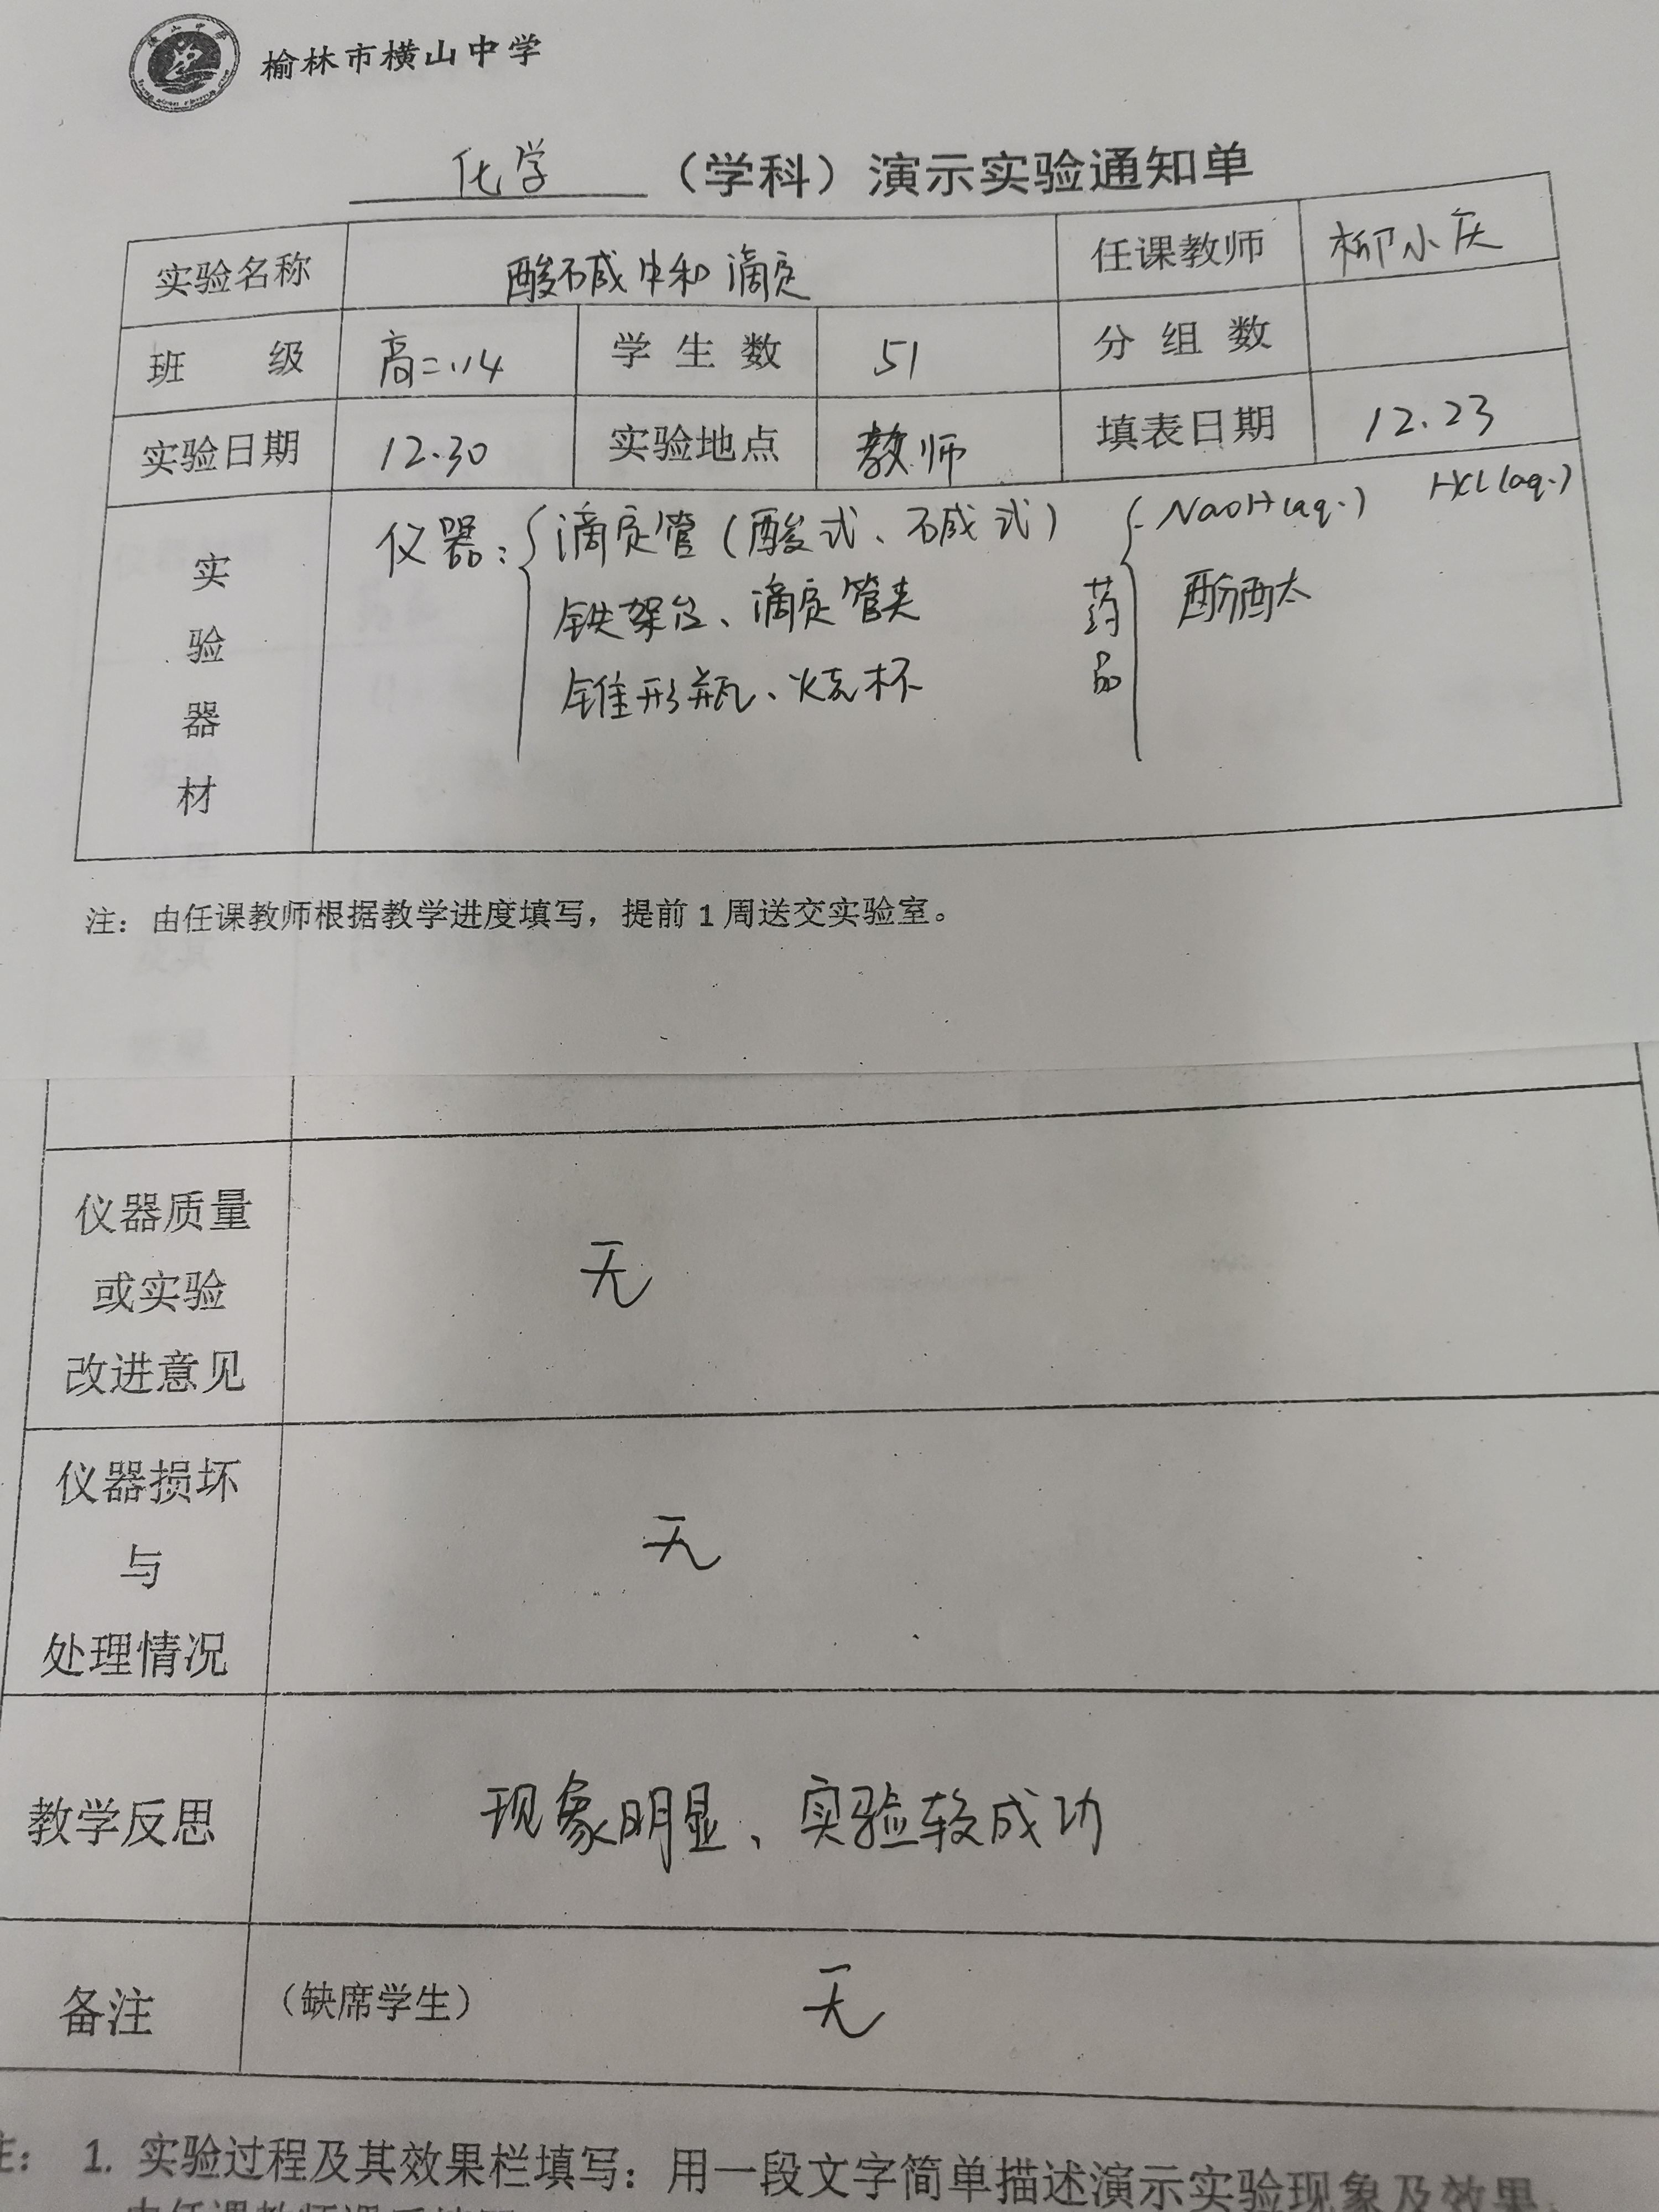 榆林市横山中学
化学（学科）演示实验通知单
实验名称 酸碱中和滴定 任课教师 柳小庆
班 级 高二.14 学生数 51 分组数
实验日期 12.30 实验地点 教师 填表日期 12.23
实验器材
仪器：滴定管（酸式、碱式） NaOH(aq.) HCl(aq.)
铁架台、滴定管夹 药品 酚酞
锥形瓶、烧杯
注：由任课教师根据教学进度填写，提前1周送交实验室。
仪器质量
或实验 无
改进意见
仪器损坏
与 无
处理情况
教学反思 现象明显、实验较成功
备注 （缺席学生） 无
注： 1. 实验过程及其效果栏填写：用一段文字简单描述演示实验现象及效果